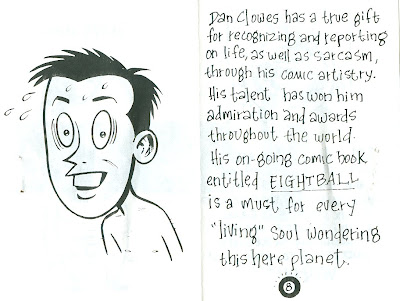 Dan Clowes has a true gift
for recognizing and reporting
on life, as well as sarcasm,
through his comic artistry.
His talent has won him
admiration and awards
throughout the world.
His on-going comic book
entitled EIGHTBALL
is a must for every
"living" soul wondering
this here planet.
8